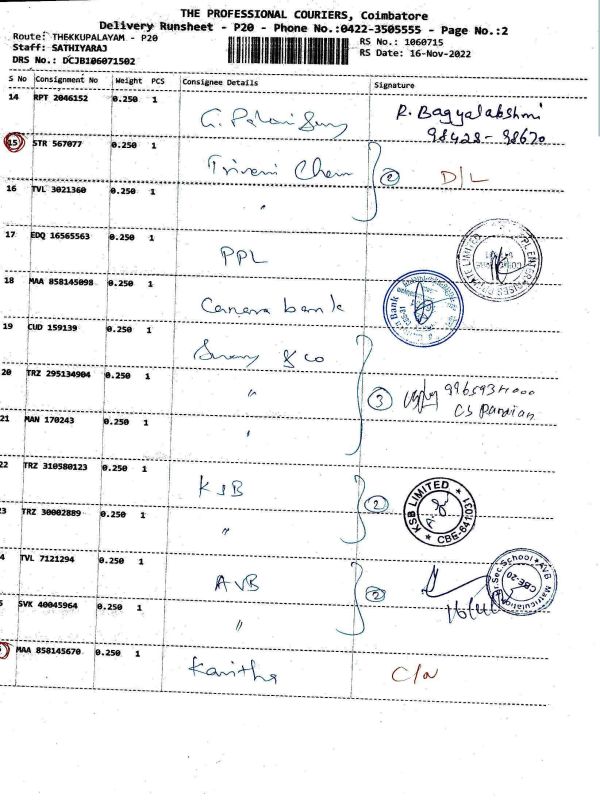 THE PROFESSIONAL COURIERS, Coimbatore
Delivery Runsheet - P20 - Phone No.:0422-3505555 - Page No.:2
Route: THEKKUPALAYAM - P20
Staff: SATHIYARAJ
DRS No.: DCJB106071502
RS No.: 1060715
RS Date: 16-Nov-2022
S No Consignment No Weight PCS Consignee Details Signature
14 RPT 2046152 0.250 1 R. Bagyalakshmi
98428-98670
15 STR 567077 0.250 1 Triveni Chem 2 D/L
16 TVL 3021360 0.250 1 "
17 EDQ 16565563 0.250 1 PPL
18 MAA 858145098 0.250 1 Canara bank
19 CUD 159139 0.250 1 & co
20 TRZ 295134904 0.250 1 " 3
CS Pandian
21 MAN 170243 0.250 1 "
22 TRZ 310580123 0.250 1 KSB 2 KSB LIMITED CBE-641031
3 TRZ 30002889 0.250 1 "
4 TVL 7121294 0.250 1 AVB 2 AVB Matriculation Hr.Sec.School CBE-20
5 SVK 40045964 0.250 1 "
MAA 858145670 0.250 1 Kavitha C/N